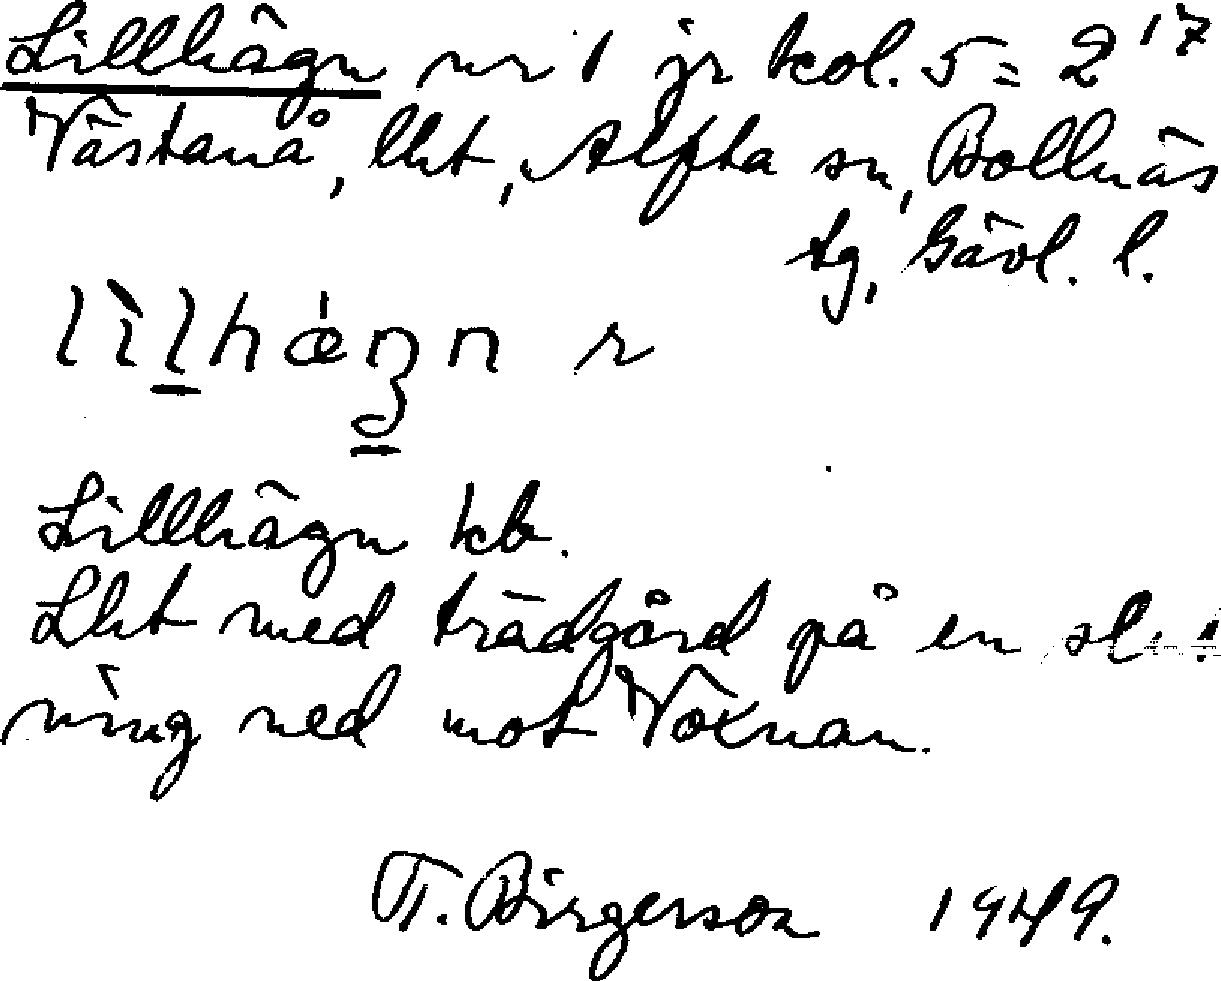 Lillhägn nr 1 jr kol. 5 = 2¹⁷
Västanå, lht, Alfta sn, Bollnäs
tg, Gävl. l.
lìlhǽgn r
Lillhägn kb.
Lht med trädgård på en
ning ned mot Voxnan.
T. Birgerson 1949.